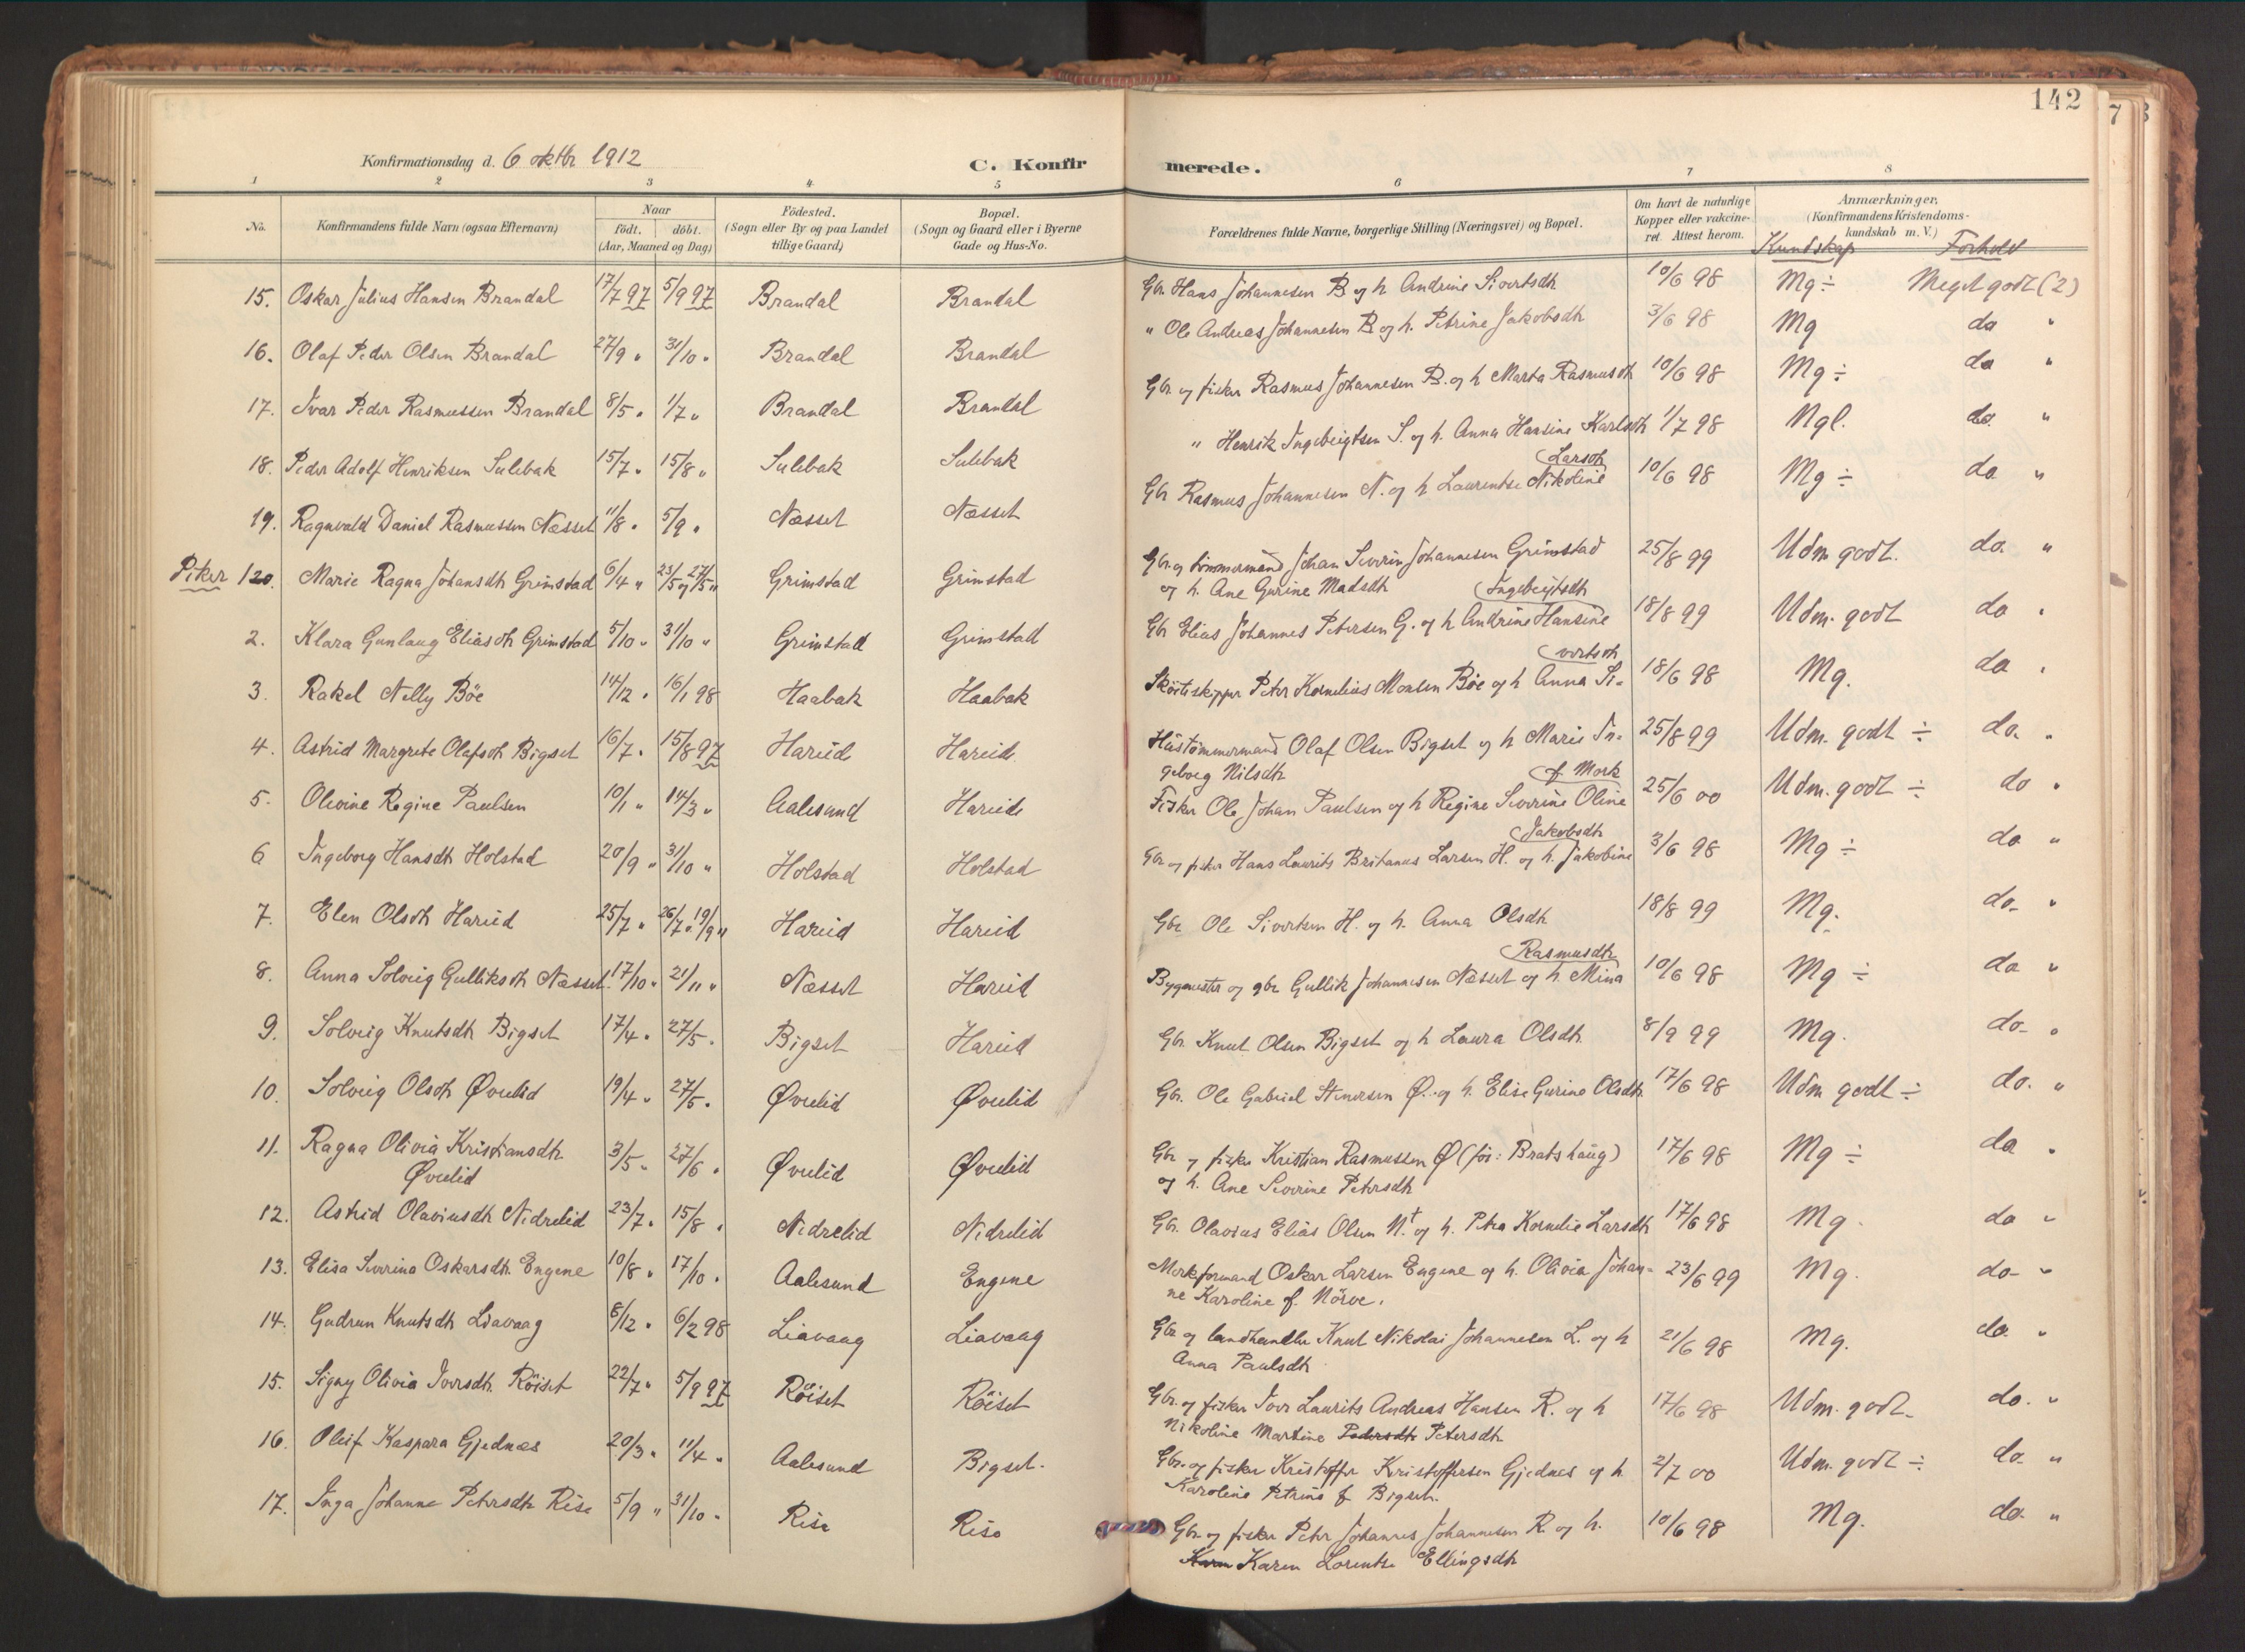 142
7
Konfirmationsdag d. 6 oktbr 1912
C. Konfirmerede.
1 2 3 4 5 6 7 8
No. Konfirmandens fulde Navn (ogsaa Efternavn) Naar födt. döbt. (Aar, Maaned og Dag) Födested. (Sogn eller By og paa Landet tillige Gaard) Bopæl. (Sogn og Gaard eller i Byerne Gade og Hus-No. Forældrenes fulde Navne, borgerlige Stilling (Næringsvei) og Bopæl. Om havt de naturlige Kopper eller vakcineret. Attest herom. Anmærkninger, (Konfirmandens Kristendomskundskab m. V.)
Kundskap Forhold
15. Oskar Julius Hansen Brandal 17/7 97 5/9 97 Brandal Brandal Gbr. Hans Johannesen B og h Andrine Sivertsdtr 10/6 98 Mg ÷ Meget godt (2)
16. Olaf Peder Olsen Brandal 27/9 " 31/10 " Brandal Brandal " Ole Andreas Johannesen B og h. Petrine Jakobsdtr 3/6 98 Mg do "
17. Ivar Peder Rasmussen Brandal 8/5 " 1/7 " Brandal Brandal Gbr. og fisker Rasmus Johannesen B. og h Marta Rasmusdtr 10/6 98 Mg ÷ do "
18. Peder Adolf Henriksen Sulebak 15/7 " 15/8 " Sulebak Sulebak " Henrik Ingebrigtsen S. og h. Anna Hansine Karlsdtr 1/7 98 Ngl. do. "
19. Ragnvald Daniel Rasmussen Næsset 11/8 " 5/9 " Næsset Næsset Gbr Rasmus Johannesen N. og h Laurentse Nikoline Larsdtr 10/6 98 Mg ÷ do "
Piker 120. Marie Ragna Johansdtr Grimstad 6/4 " 23/5 og 27/5 " Grimstad Grimstad Gbr. og tömmermand Johan Severin Johannesen Grimstad
og h. Ane Gurine Madsdtr 25/8 99 Udm. godt. do. "
2. Klara Gunlaug Eliasdtr Grimstad 5/10 " 31/10 " Grimstad Grimstad Gbr Elias Johannes Petersen G. og h Andrine Hansine Ingebrigtsdtr 18/8 99 Udm. godt do "
3. Rakel Nelly Böe 14/12 " 16/1 98 Haabak Haabak Sköiteskipper Peter Kornelius Monsen Böe og h Anna Sivertsdtr 18/6 98 Mg. do "
4. Astrid Margrete Olafsdtr Bigset 16/7 " 15/8 97 Hareid Hareid Hustömmermand Olaf Olsen Bigset og h Marie In-
geborg Nilsdtr 25/8 99 Udm. godt ÷ do. "
5. Olevine Regine Paulsen 10/1 " 14/3 " Aalesund Hareid Fisker Ole Johan Paulsen og h Regine Severine Oline f. Mork 25/6 00 Udm. godt ÷ do "
6 Ingeborg Hansdtr Holstad 20/9 " 31/10 " Holstad Holstad Gbr og fisker Hans Laurits Britanus Larsen H. og h. Jakobine Jakobsdtr 3/6 98 Mg ÷ do "
7. Elen Olsdtr Hareid 25/7 " 26/7 " 19/9 " Hareid Hareid Gbr Ole Sivertsen H. og h. Anna Olsdtr 18/8 99 Mg. do "
8. Anna Solveig Gulliksdtr Næsset 17/10 " 21/11 " Næsset Hareid Bygmester og gbr Gullik Johannesen Næsset og h Mina Rasmusdtr 10/6 98 Mg ÷ do "
9. Solveig Knutsdtr Bigset 17/4 " 27/5 " Bigset Hareid Gbr. Knut Olsen Bigset og h Laura Olsdtr 8/9 99 Mg. do "
10. Solveig Olsdtr Øvrelid 19/4 " 27/5 " Øvrelid Øvrelid Gbr. Ole Gabriel Stenersen Ø. og h. Elise Gurine Olsdtr 17/6 98 Udm godt ÷ do. "
11. Ragna Olivia Kristiansdtr
Øvrelid 3/5 " 27/6 " Øvrelid Øvrelid Gbr og fisker Kristian Rasmussen Ø (för: Bratshaug)
og h. Ane Severine Petersdtr 17/6 98 Mg ÷ do "
12. Astrid Olaviusdtr Nidrelid 23/7 " 15/8 " Nidrelid Nidrelid Gbr. Olavius Elias Olsen N.† og h. Petra Kornelie Larsdtr 17/6 98 Mg. do "
13. Elisa Severine Oskarsdtr. Engene 10/8 " 17/10 " Aalesund Engene Merkformand Oskar Larsen Engene og h. Olivia Johan-
ne Karoline f. Nörve. 23/6 99 Mg. do "
14. Gudrun Knutsdtr Liavaag 8/12 " 6/2 98 Liavaag Liavaag Gbr og landhandler Knut Nikolai Johannesen L. og h
Anna Paulsdtr 21/6 98 Mg. do. "
15. Signy Olivia Iversdtr. Röiset 22/7 " 5/9 97 Röiset Röiset Gbr. og fisker Iver Laurits Andreas Hansen R. og h
Nikoline Martine Pedersdtr Petersdtr 17/6 98 Udm. godt. do. "
16. Oleif Kaspara Gjednes 20/3 " 11/4 " Aalesund Bigset. Gbr. og fisker Kristoffer Kristoffersen Gjednes og h.
Karoline Petrine f Bigset. 2/7 00 Udm. godt ÷ do. "
17. Inga Johanne Petersdtr Rise 5/9 " 31/10 " Rise Rise Gbr. og fisker Peter Johannes Johannesen R. og h.
Karen Karen Lorentse Ellingsdtr 10/6 98 Mg. do. "